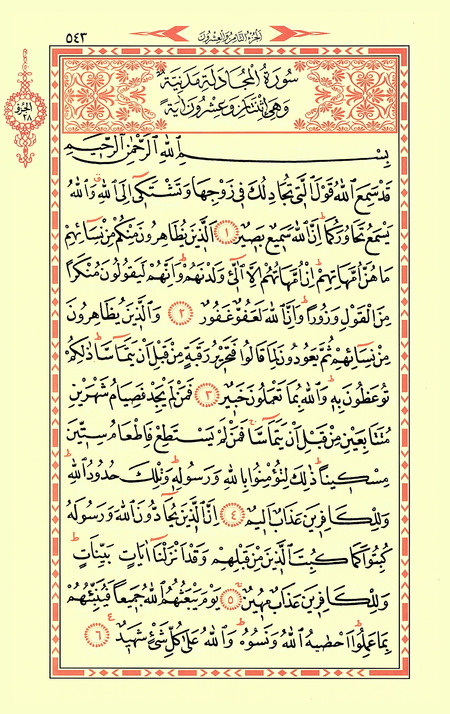 الجزء الثامن والعشرون
٥٤٣
سورة المجادلة مدنية
وهي اثنتان وعشرون آية
الجزء
٢٨
بِسْمِ اللهِ الرَّحْمٰنِ الرَّحِيمِ
قَدْ سَمِعَ اللهُ قَوْلَ الَّتِي تُجَادِلُكَ فِي زَوْجِهَا وَتَشْتَكِي إِلَى اللهِ وَاللهُ
يَسْمَعُ تَحَاوُرَكُمَا إِنَّ اللهَ سَمِيعٌ بَصِيرٌ ١ اَلَّذِينَ يُظَاهِرُونَ مِنْكُمْ مِنْ نِسَائِهِمْ
مَا هُنَّ أُمَّهَاتِهِمْ إِنْ أُمَّهَاتُهُمْ إِلَّا الّٰئِي وَلَدْنَهُمْ وَإِنَّهُمْ لَيَقُولُونَ مُنْكَرًا
مِنَ الْقَوْلِ وَزُورًا وَإِنَّ اللهَ لَعَفُوٌّ غَفُورٌ ٢ وَالَّذِينَ يُظَاهِرُونَ
مِنْ نِسَائِهِمْ ثُمَّ يَعُودُونَ لِمَا قَالُوا فَتَحْرِيرُ رَقَبَةٍ مِنْ قَبْلِ أَنْ يَتَمَاسَّا ذٰلِكُمْ
تُوعَظُونَ بِهِ وَاللهُ بِمَا تَعْمَلُونَ خَبِيرٌ ٣ فَمَنْ لَمْ يَجِدْ فَصِيَامُ شَهْرَيْنِ
مُتَتَابِعَيْنِ مِنْ قَبْلِ أَنْ يَتَمَاسَّا فَمَنْ لَمْ يَسْتَطِعْ فَإِطْعَامُ سِتِّينَ
مِسْكِينًا ذٰلِكَ لِتُؤْمِنُوا بِاللهِ وَرَسُولِهِ وَتِلْكَ حُدُودُ اللهِ
وَلِلْكَافِرِينَ عَذَابٌ أَلِيمٌ ٤ إِنَّ الَّذِينَ يُحَادُّونَ اللهَ وَرَسُولَهُ
كُبِتُوا كَمَا كُبِتَ الَّذِينَ مِنْ قَبْلِهِمْ وَقَدْ أَنْزَلْنَا اٰيَاتٍ بَيِّنَاتٍ
وَلِلْكَافِرِينَ عَذَابٌ مُهِينٌ ٥ يَوْمَ يَبْعَثُهُمُ اللهُ جَمِيعًا فَيُنَبِّئُهُمْ
بِمَا عَمِلُوا أَحْصٰيهُ اللهُ وَنَسُوهُ وَاللهُ عَلٰى كُلِّ شَيْءٍ شَهِيدٌ ٦